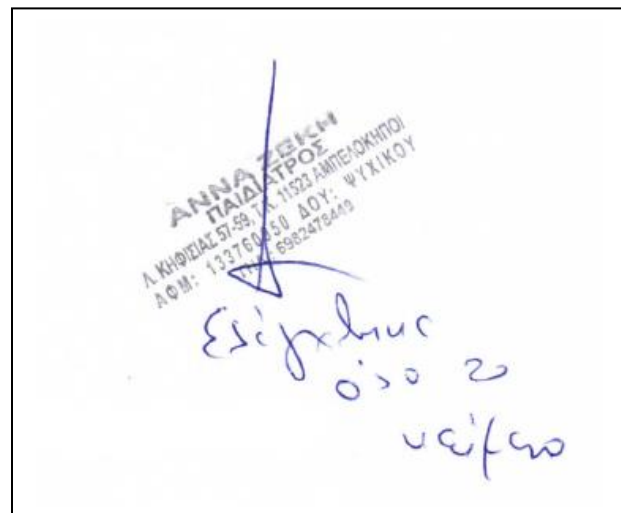 ΑΝΝΑ ΖΕΚΗ
ΠΑΙΔΙΑΤΡΟΣ
Λ. ΚΗΦΙΣΙΑΣ 57-59, Τ.Κ. 11523 ΑΜΠΕΛΟΚΗΠΟΙ
ΑΦΜ: 133760950 ΔΟΥ: ΨΥΧΙΚΟΥ
ΤΗΛ: 6982478449
Ελέγχθηκε
όλο το
κείμενο